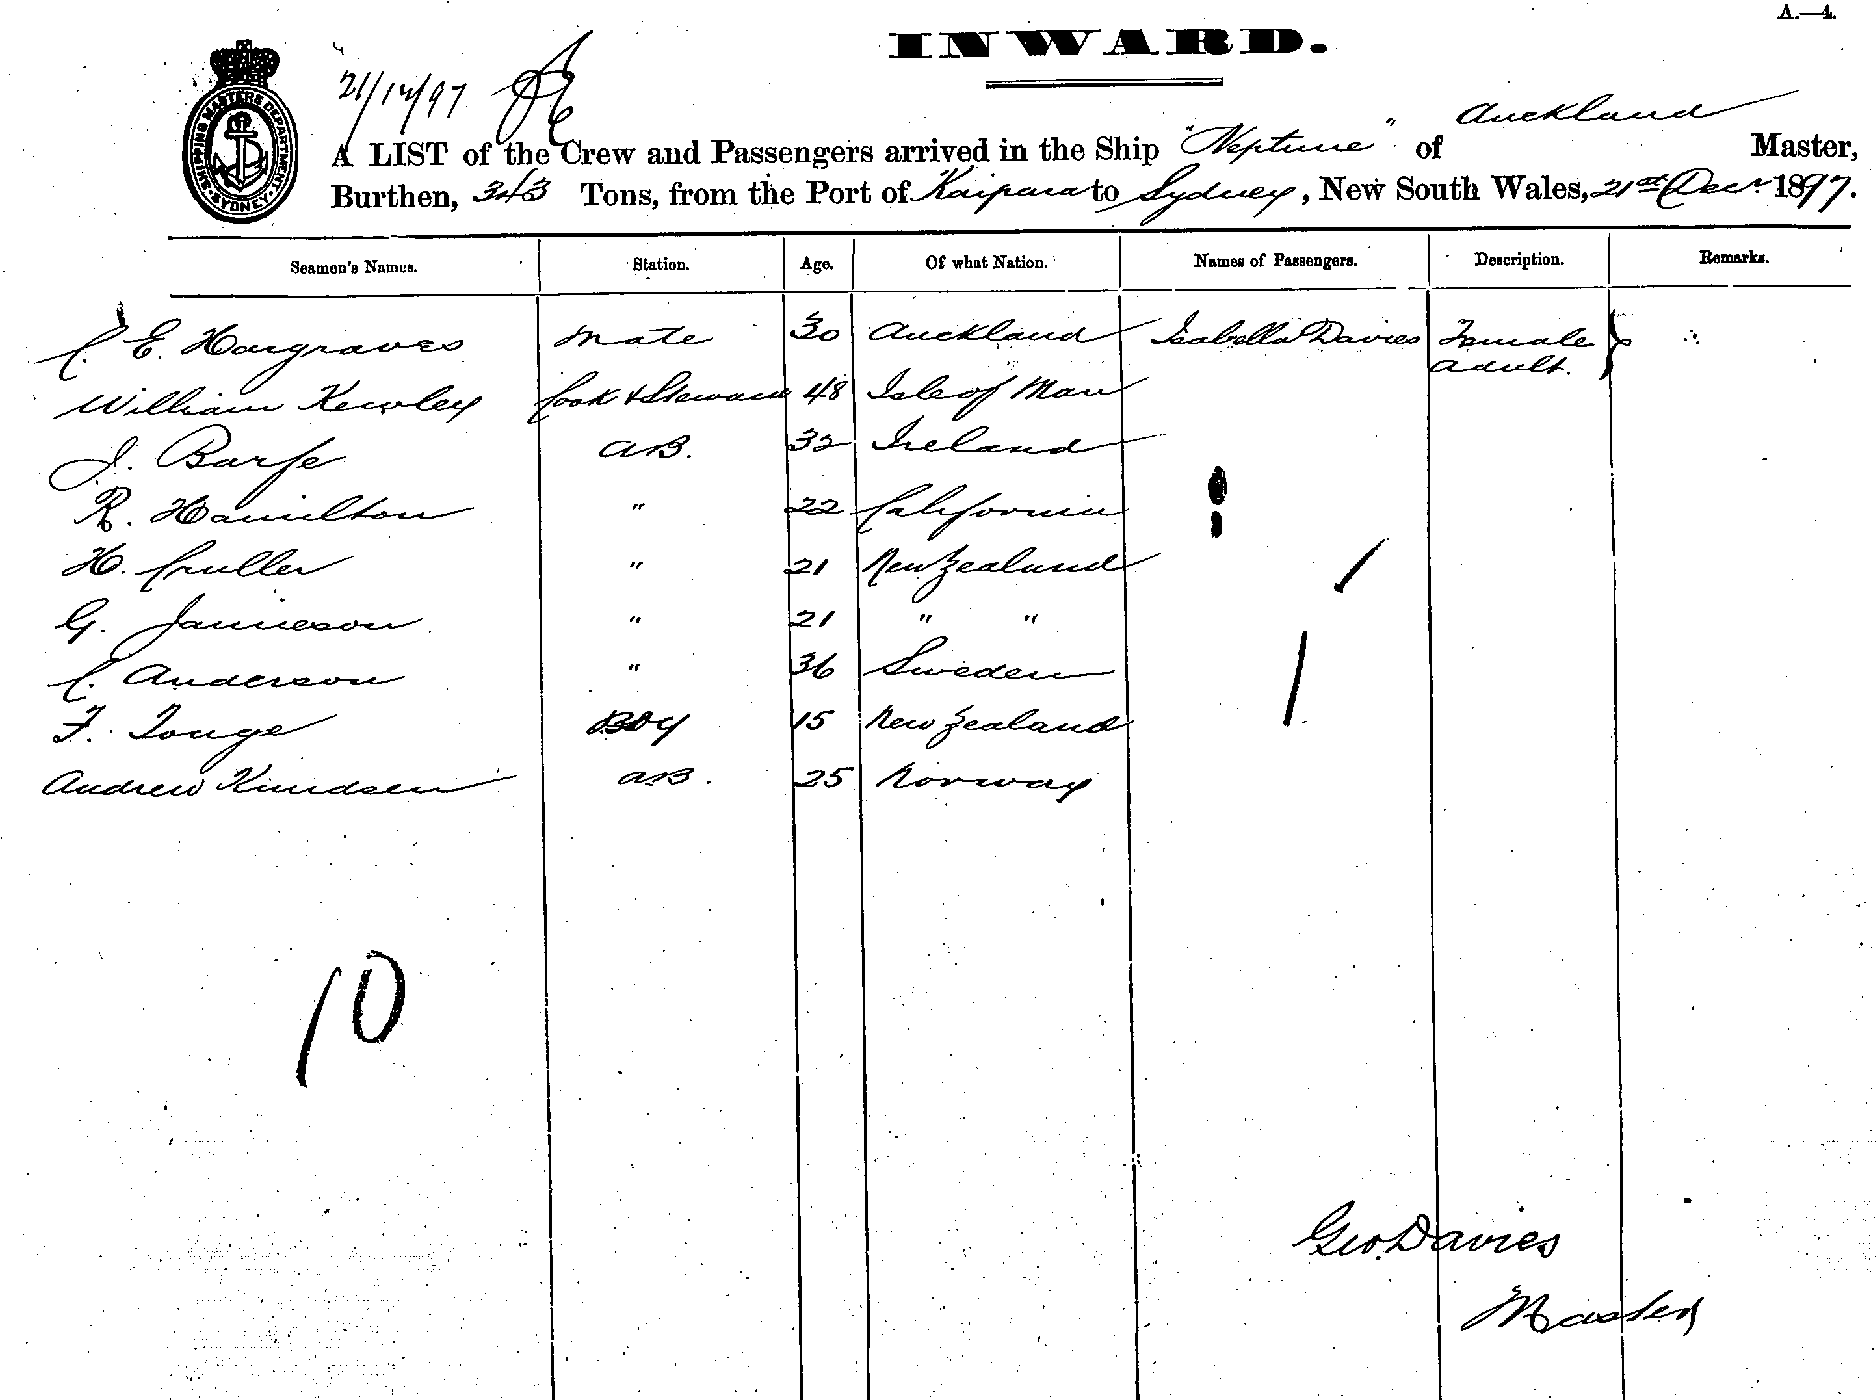 A.—4.
INWARD.
21/12/97
SHIPPING MASTERS DEPARTMENT SYDNEY
Auckland
A LIST of the Crew and Passengers arrived in the Ship "Neptune" of Master,
Burthen, 343 Tons, from the Port of Kaipara to Sydney, New South Wales, 21st Decr. 1897.
Seamen's Names. Station. Age. Of what Nation. Names of Passengers. Description. Remarks.
C. E. Hargraves Mate 30 Auckland Isabella Davies Female
adult.
William Kewley Cook & Steward 48 Isle of Man
J. AB. 32 Ireland
R. Hamilton " 22 California
H. " 21 New Zealand
G. Jamieson " 21 " "
C. Anderson " 36 Sweden
F. Tonge Boy 15 New Zealand
Andrew Knudsen AB. 25 Norway
10
Geo. Davies
Master